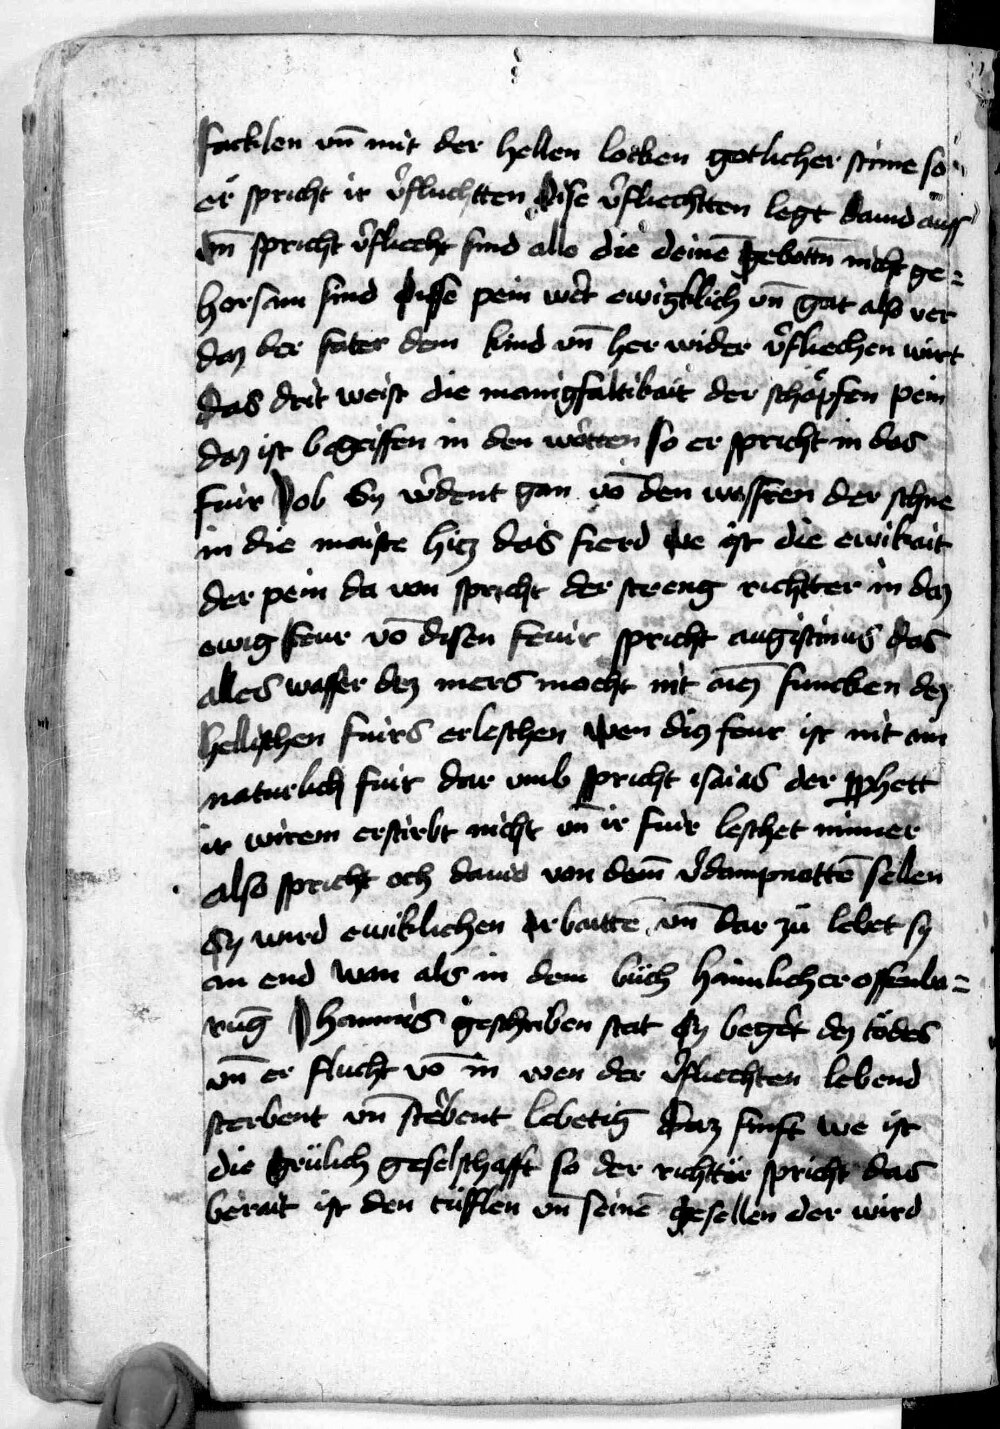 facklen vn̄ mit der hellen locken gotlicher stime so
er spricht ir v̉fluchtten dise v̉fliechtten legt dauid auss
vn̄ spricht v̉fliecht sind alle die deinē gebottn̄ nicht ge=
horsam sind disse pein wẻt ewigklich vn̄ gat also ver
daz der fater dem kind vn̄ her wider v̉fliechen wirt
das drit weist die manigfaltikait der schöpfen pein
daz ist begriffen in den wỏtten so er spricht in das
fuir Job sy wẻdent gan vō den wassren der schne
in die maiste hicz das fierd we ist die ewikait
der pein da von spricht der streng richtter in daz
ewig feur vō disen feuir spricht augistinus das
alles wasser dez mers mocht nit ain funcken dez
hellischen fuirs erleschen wen diz feur ist nit ain
naturlich fuir dar vmb spricht isaias der pphett
ir wirem erstirbt nicht vn̄ ir fuir leschet nimer
also spricht och dauid von dem̄ v̉dampnottē sellen
Sy wurd ewiklichen arbaittē vn̄ dar zů lebet sy
an end wan als in dem büch haimlicher offenba=
rung Johannis geschriben stat Sy begẻt dez todes
vn̄ er flucht vō in wen der v̉fliechten lebend
sterbent vn̄ stẻbent lebetig Daz finft we ist
die grülich geselschafft so der richttër spricht das
berait ist den tüfflen vn̄ seinē gesellen der wird